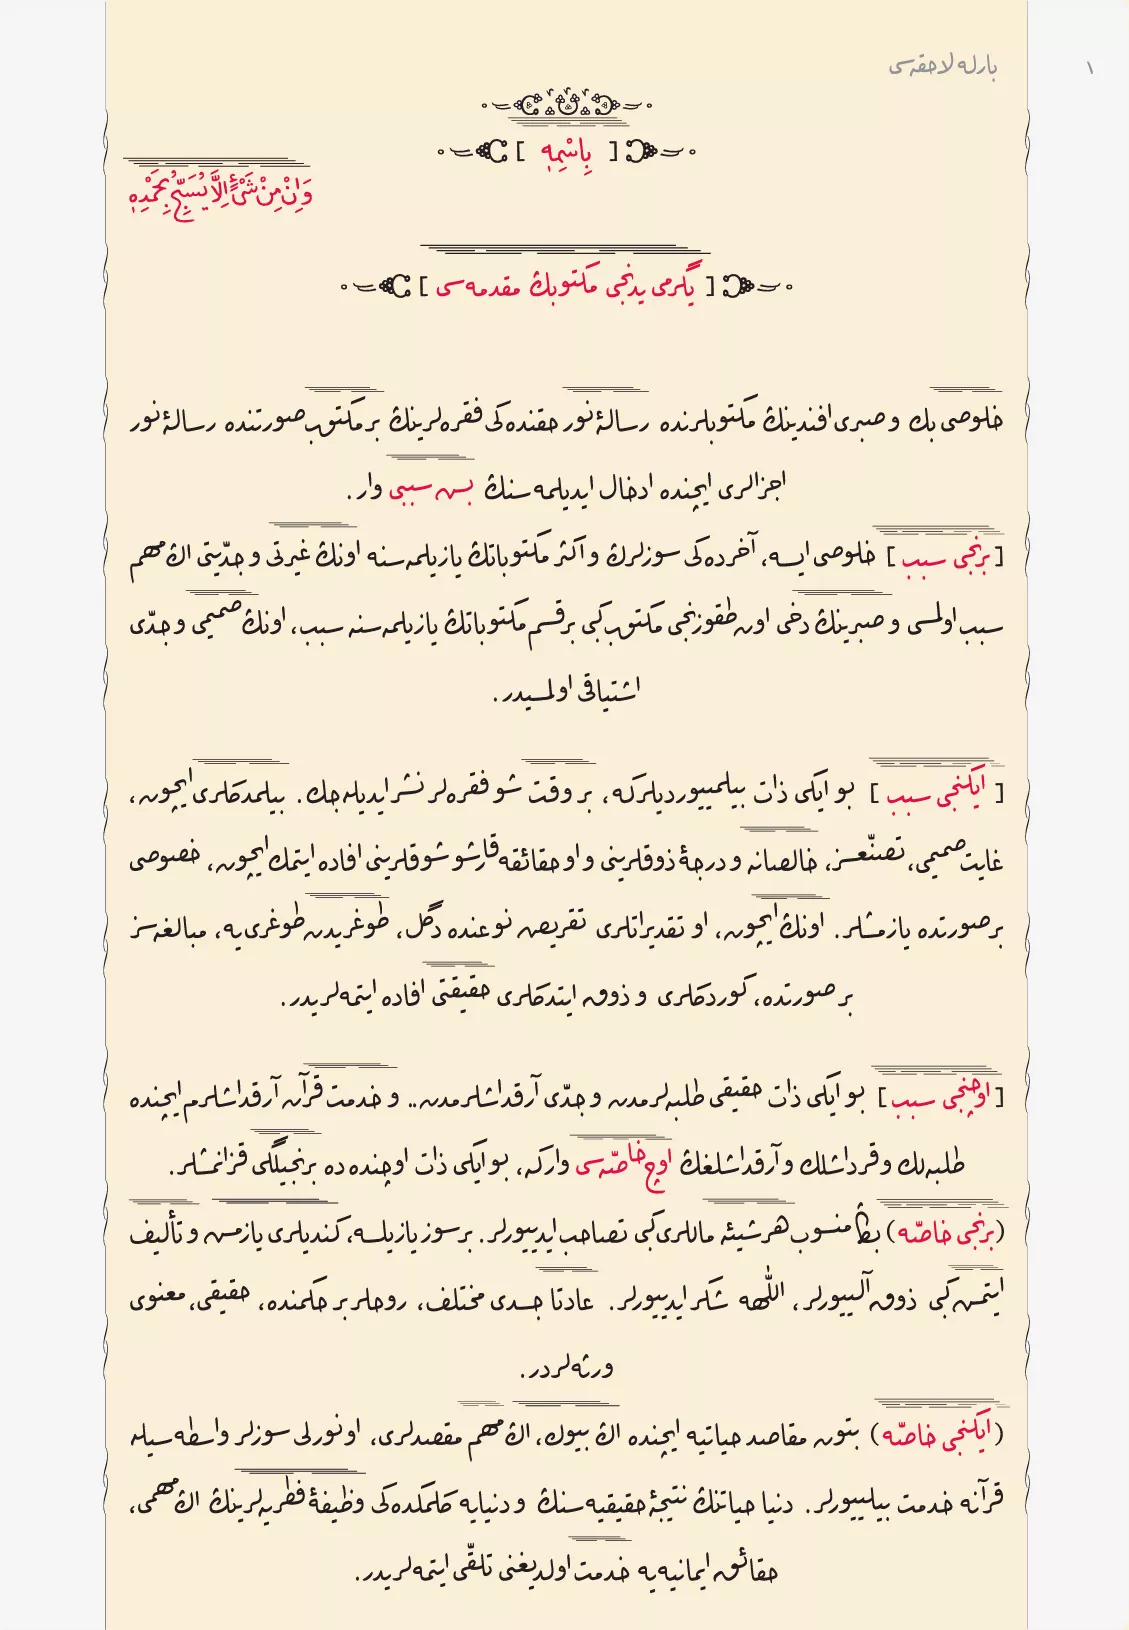 ١
بارله لاحقه‌سی
[ بِاسْمِهٖ ]
وَاِنْ مِنْ شَیْءٍ اِلَّا يُسَبِّحُ بِحَمْدِهٖ
[ يگرمی يدنجی مكتوبڭ مقدمه‌سی ]
خلوصی بك و صبری افندينڭ مكتوبلرنده رسالۀ نور حقنده‌كی فقره‌لرينڭ بر مكتوب صورتنده رسالۀ نور
اجزالری ايچنده ادخال ايديلمه‌سنڭ بش سببی وار.
[ برنجی سبب ] خلوصی ايسه، آخرده‌كی سوزلرڭ و اكثر مكتوباتڭ يازيلمه‌سنه اونڭ غيرتی و جدّيتی اڭ مهم
سبب اولمسی و صبرينڭ دخی اون طقوزنجی مكتوب كبی بر قسم مكتوباتڭ يازيلمه‌سنه سبب، اونڭ صميمی و جدّی
اشتياقی اولمسيدر.
[ ايكنجی سبب ] بو ايكی ذات بيلمييورديلركه، بر وقت شو فقره‌لر نشر ايديله‌جك. بيلمدكلری ايچون،
غايت صميمی، تصنّعسز، خالصانه و درجۀ ذوقلرينی و او حقائقه قارشو شوقلرينی افاده ايتمك ايچون، خصوصی
بر صورتده يازمشلر. اونڭ ايچون، او تقديراتلری تقريض نوعنده دگل، طوغريدن طوغری‌يه، مبالغه‌سز
بر صورتده، كوردكلری و ذوق ايتدكلری حقيقتی افاده ايتمه‌لريدر.
[ اوچنجی سبب ] بو ايكی ذات حقيقی طلبه‌لرمدن و جدّی آرقداشلرمدن.. و خدمت قرآن آرقداشلرم ايچنده
طلبه‌لك و قرداشلك و آرقداشلغڭ اوچ خاصّه‌سی واركه، بو ايكی ذات اوچنده ده برنجيلگی قزانمشلر.
(برنجی خاصّه) بڭا منسوب هر شيئه ماللری كبی تصاحب ايدييورلر. بر سوز يازيلسه، كنديلری يازمش و تأليف
ايتمش كبی ذوق آلييورلر، اللّٰهه شكر ايدييورلر. عادتا جسدی مختلف، روحلر بر حكمنده، حقيقی، معنوی
ورثه‌لردر.
(ايكنجی خاصّه) بتون مقاصد حياتيه ايچنده اڭ بيوك، اڭ مهم مقصدلری، او نورلی سوزلر واسطه‌سيله
قرآنه خدمت بيلييورلر. دنيا حياتنڭ نتيجۀ حقيقيه‌سنڭ و دنيايه كلمكده‌كی وظيفۀ فطريه‌لرينڭ اڭ مهمی،
حقائق ايمانيه‌يه خدمت اولديغنی تلقّی ايتمه‌لريدر.